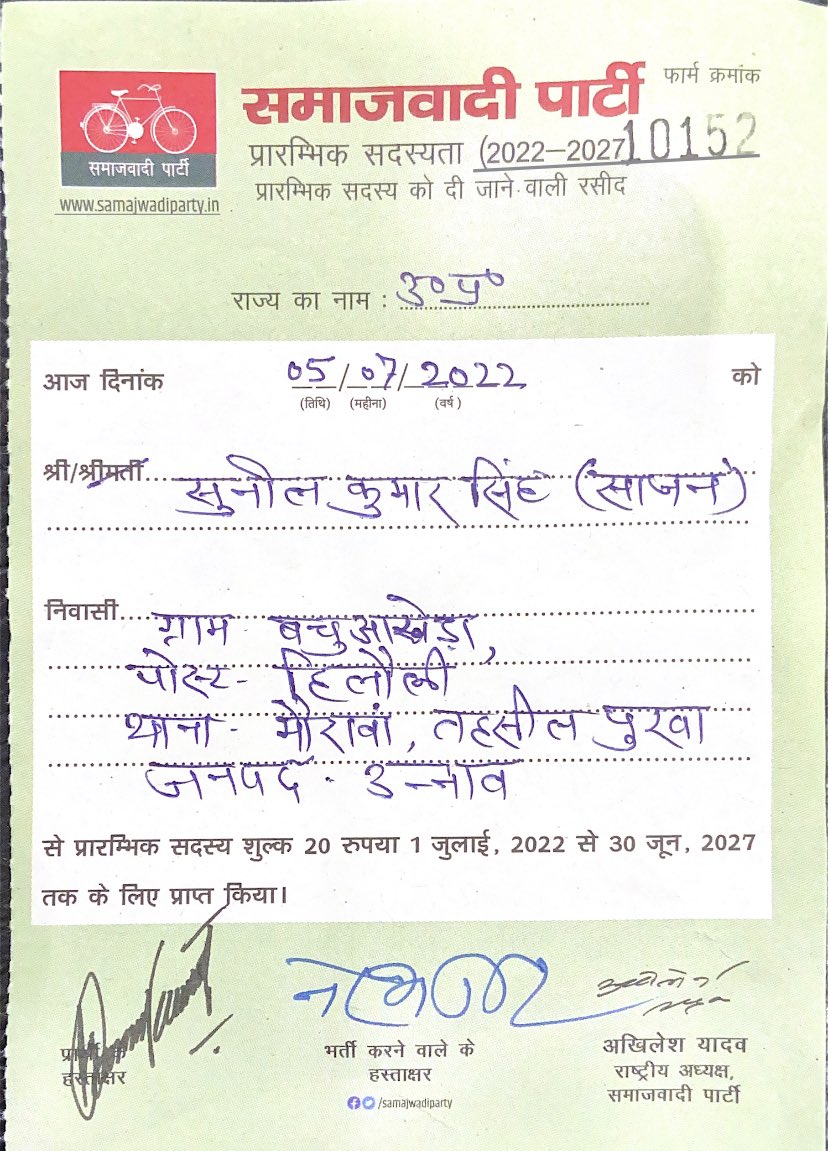 समाजवादी पार्टी
www.samajwadiparty.in
समाजवादी पार्टी
फार्म क्रमांक
प्रारम्भिक सदस्यता (2022–2027) 10152
प्रारम्भिक सदस्य को दी जाने वाली रसीद
राज्य का नाम : उ० प्र०
आज दिनांक 05/07/2022 को
(तिथि) (महीना) (वर्ष)
श्री/श्रीमती सुनील कुमार सिंह (साजन)
निवासी ग्राम - बचुआखेड़ा,
पोस्ट - हिलौली
थाना - मौरावां, तहसील पुरवा
जनपद - उन्नाव
से प्रारम्भिक सदस्य शुल्क 20 रुपया 1 जुलाई, 2022 से 30 जून, 2027
तक के लिए प्राप्त किया।
हस्ताक्षर
भर्ती करने वाले के
हस्ताक्षर
/samajwadiparty
अखिलेश यादव
राष्ट्रीय अध्यक्ष,
समाजवादी पार्टी